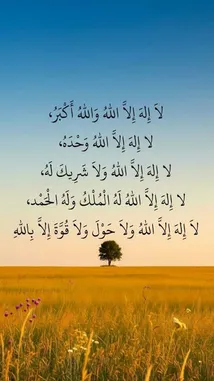 لَا إِلَهَ إِلاَّ اللهُ وَاللهُ أَكْبَرُ،
لا إِلَهَ إِلاَّ اللهُ وَحْدَهُ،
لا إِلَهَ إِلاَّ اللهُ وَلاَ شَرِيكَ لَهُ،
لا إِلَهَ إِلاَّ اللهُ لَهُ الْمُلْكُ وَلَهُ الْحَمْد،
لاَ إِلَهَ إِلاَّ اللهُ وَلاَ حَوْلَ وَلاَ قُوَّةَ إِلاَّ بِاللهِ